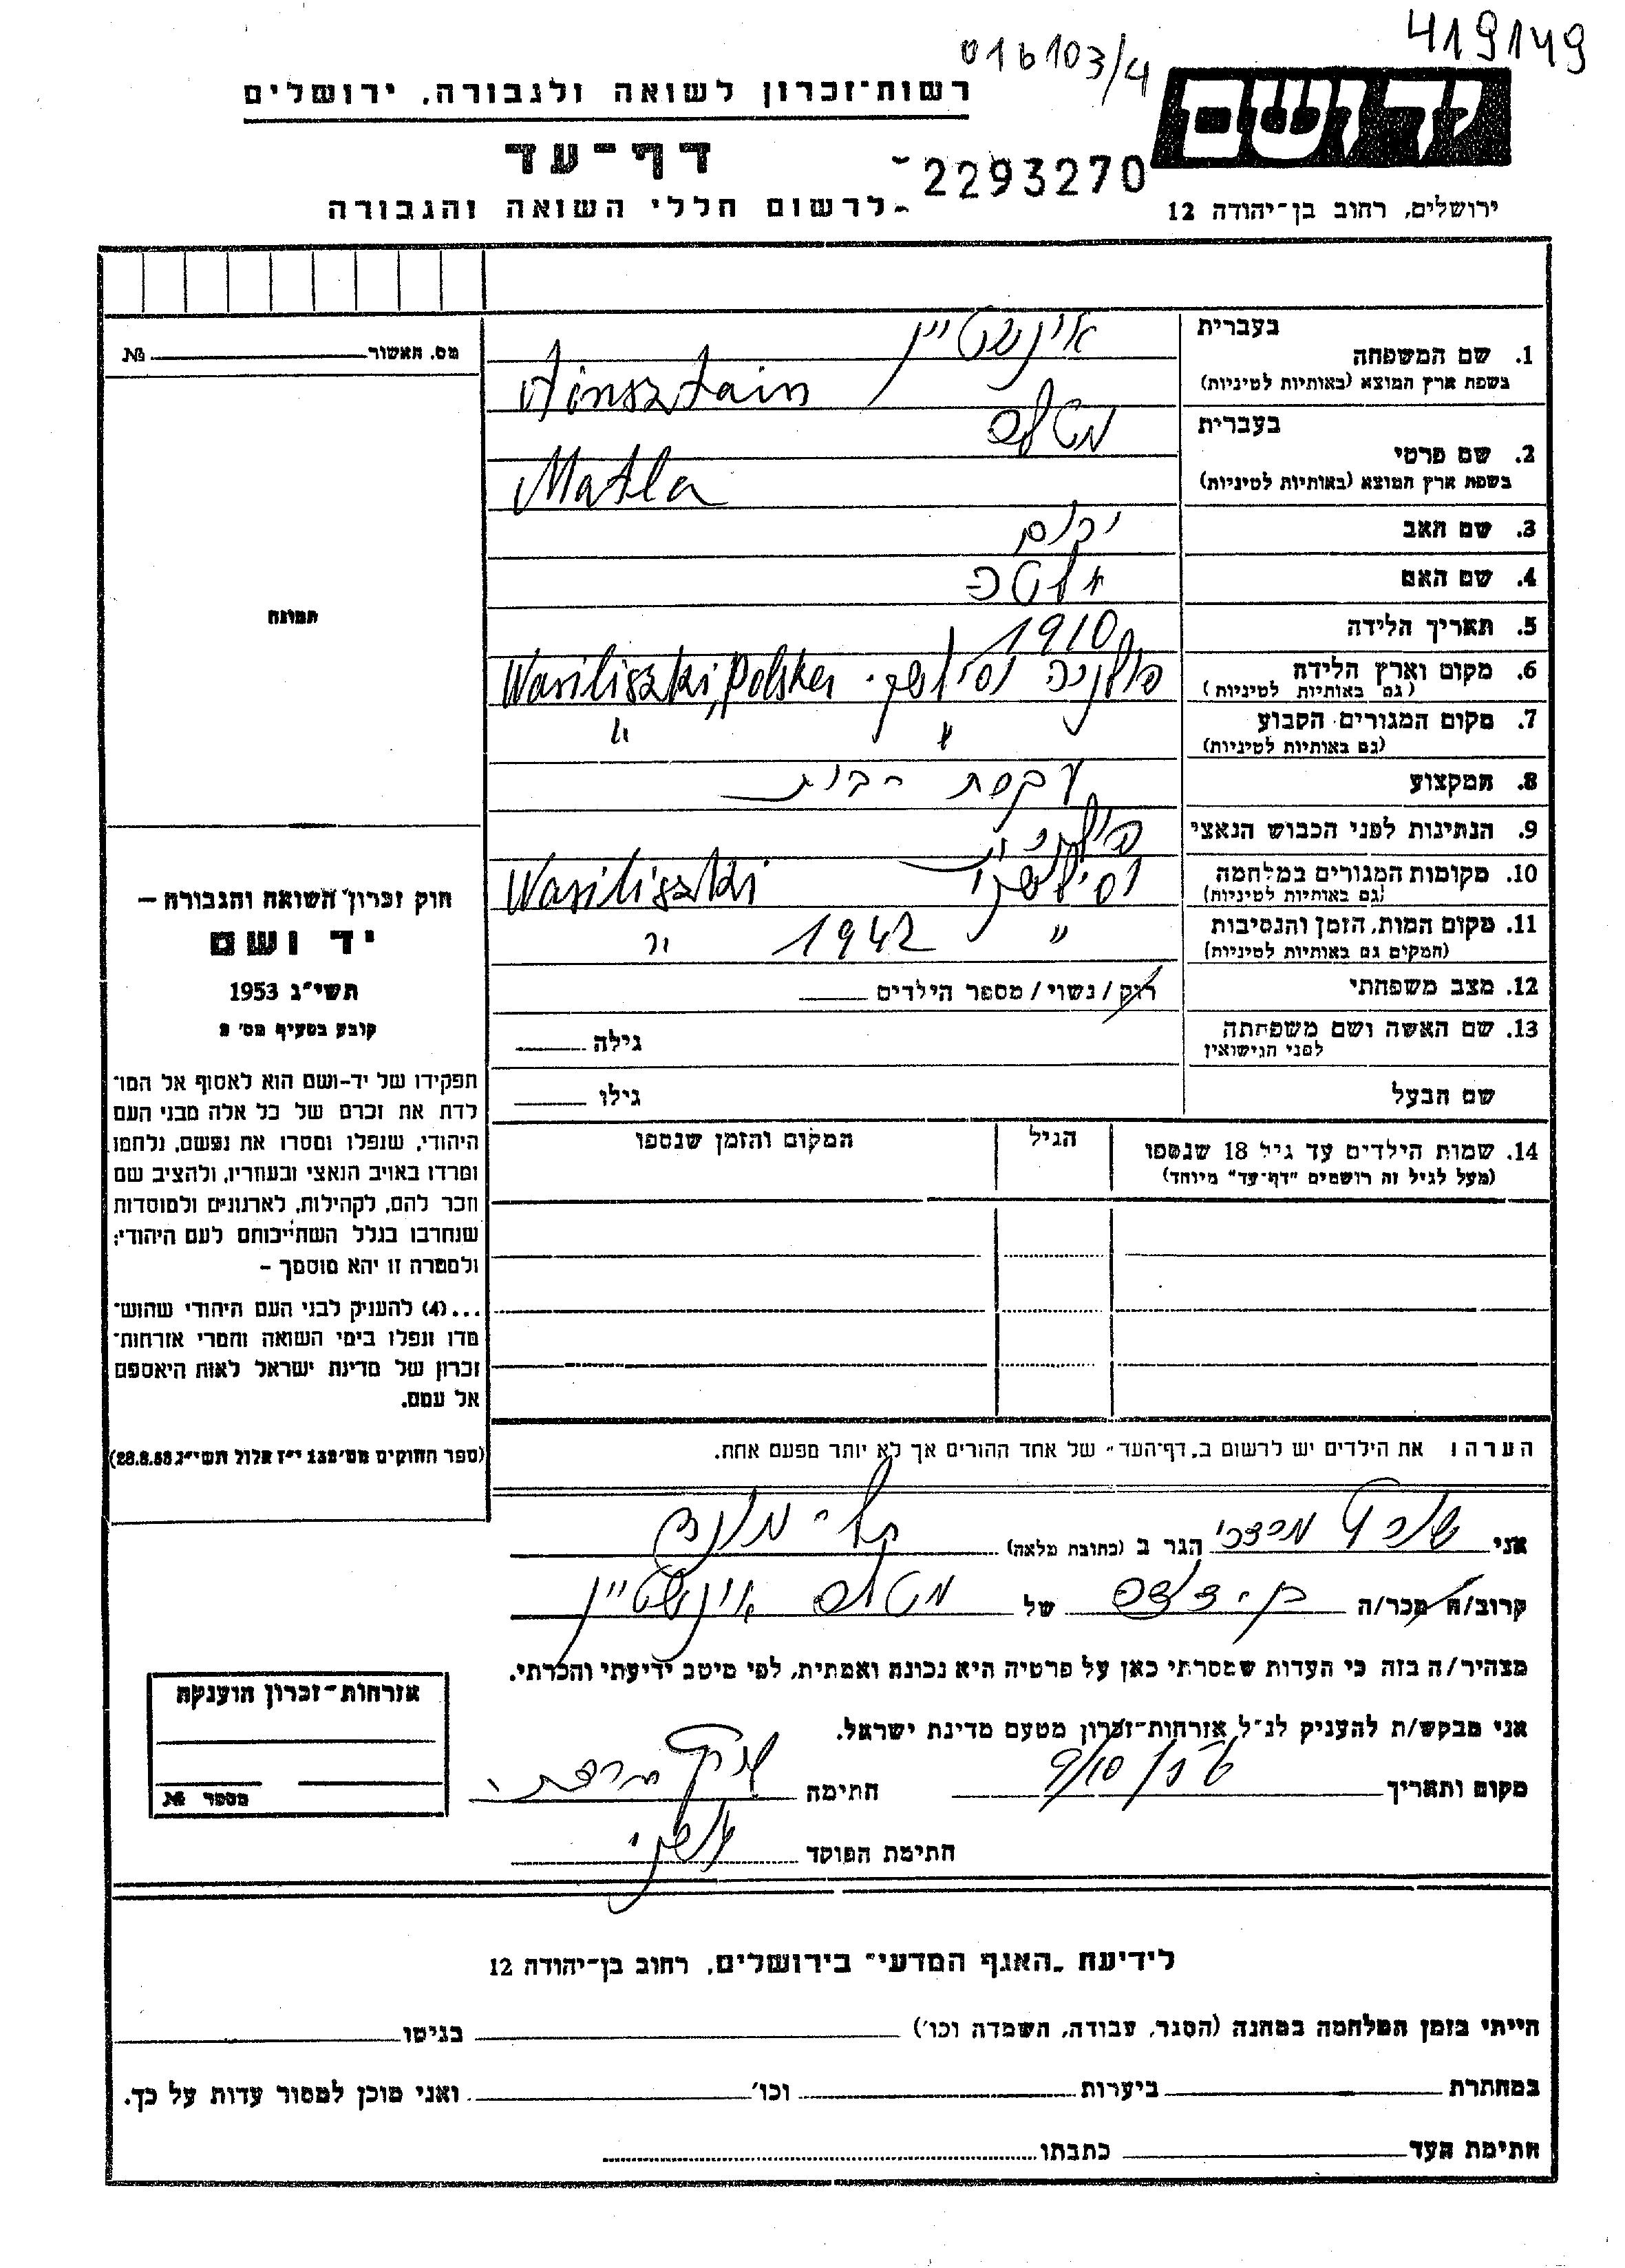 419149
016103/4
יד ושם
רשות־זכרון לשואה ולגבורה, ירושלים
דף־עד
2293270
לרשום חללי השואה והגבורה
ירושלים, רחוב בן־יהודה 12
בעברית
אינשטיין
1. שם המשפחה
בשפת ארץ המוצא (באותיות לטיניות)
Ainsztain
בעברית
מטלה
2. שם פרטי
בשפת ארץ המוצא (באותיות לטיניות)
Matla
3. שם האב
4. שם האם
5. תאריך הלידה 1910
6. מקום וארץ הלידה
(גם באותיות לטיניות)
Wasiliszki, Polska
7. מקום המגורים הקבוע
(גם באותיות לטיניות)
" "
8. המקצוע עקרת הבית
9. הנתינות לפני הכבוש הנאצי
10. מקומות המגורים במלחמה
(גם באותיות לטיניות)
וסילישקי Wasiliszki
11. מקום המות, הזמן והנסיבות
(המקום גם באותיות לטיניות)
" 1942 "
12. מצב משפחתי רוק/נשוי/מספר הילדים
13. שם האשה ושם משפחתה
לפני הנישואין
גילה
שם הבעל גילו
14. שמות הילדים עד גיל 18 שנספו
(מעל לגיל זה רושמים "דף־עד" מיוחד)
הגיל
המקום והזמן שנספו
הערה: את הילדים יש לרשום ב"דף־העד" של אחד ההורים אך לא יותר מפעם אחת.
מס. האשור №
תמונה
חוק זכרון השואה והגבורה –
יד ושם
תשי"ג 1953
קובע בסעיף מס' 2
תפקידו של יד-ושם הוא לאסוף אל המו־
לדת את זכרם של כל אלה מבני העם
היהודי, שנפלו ומסרו את נפשם, נלחמו
ומרדו באויב הנאצי ובעוזריו, ולהציב שם
וזכר להם, לקהילות, לארגונים ולמוסדות
שנחרבו בגלל השתייכותם לעם היהודי;
ולמטרה זו יהא מוסמך –
...(4) להעניק לבני העם היהודי שהוש־
מדו ונפלו בימי השואה והמרי אזרחות־
זכרון של מדינת ישראל לאות היאספם
אל עמם.
(ספר החוקים מס' 132 י"ז אלול תשי"ג 28.8.53)
אני הגר ב (כתובת מלאה)
קרוב/ה מכר/ה של מטלה אינשטיין
מצהיר/ה בזה כי העדות שמסרתי כאן על פרטיה היא נכונה ואמתית, לפי מיטב ידיעתי והכרתי.
אני מבקש/ת להעניק לנ"ל אזרחות־זכרון מטעם מדינת ישראל.
מקום ותאריך חתימה
חתימת הפוקד
אזרחות־זכרון הוענקה
מספר №
לידיעת "האגף המדעי" בירושלים, רחוב בן־יהודה 12
הייתי בזמן המלחמה במחנה (הסגר, עבודה, השמדה וכו') בגיטו
במחתרת ביערות וכו' ואני מוכן למסור עדות על כך.
חתימת העד כתבתו